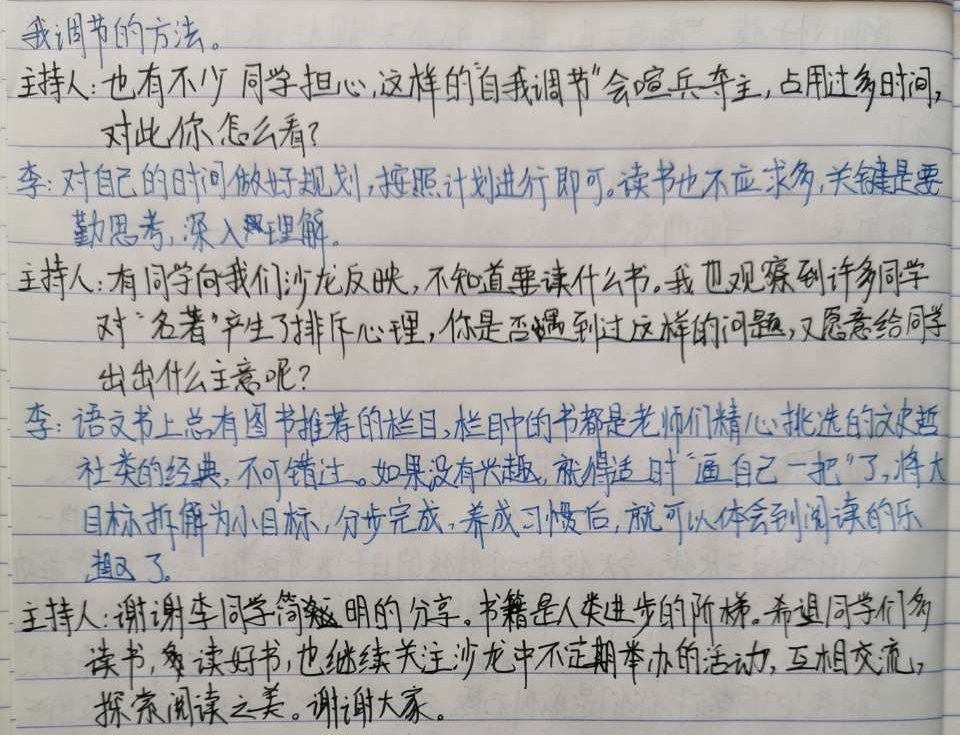 我调节的方法。
主持人:也有不少同学担心,这样的"自我调节"会喧兵夺主,占用过多时间,
对此你怎么看?
李:对自己的时间做好规划,按照计划进行即可。读书也不应求多,关键是要
勤思考,深入理解。
主持人:有同学向我们沙龙反映,不知道要读什么书。我也观察到许多同学
对"名著"产生了排斥心理,你是否遇到过这样的问题,又愿意给同学
出出什么主意呢?
李:语文书上总有图书推荐的栏目,栏目中的书都是老师们精心挑选的文史哲
社类的经典,不可错过。如果没有兴趣,就得适时"逼自己一把"了,将大
目标拆解为小目标,分步完成,养成习惯后,就可以体会到阅读的乐
趣了。
主持人:谢谢李同学简明的分享。书籍是人类进步的阶梯。希望同学们多
读书,读好书,也继续关注沙龙中不定期举办的活动,互相交流,
探索阅读之美。谢谢大家。